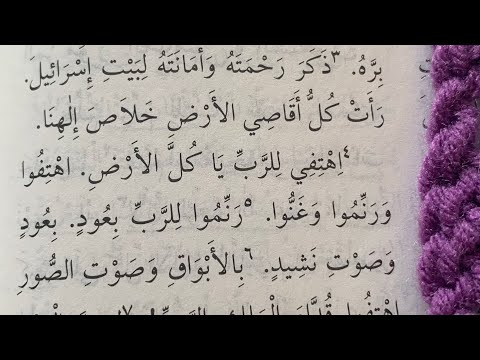 بِرَّهُ. ٣ذَكَرَ رَحْمَتَهُ وَأَمَانَتَهُ لِبَيْتِ إِسْرَائِيلَ.
رَأَتْ كُلُّ أَقَاصِي الأَرْضِ خَلاَصَ إِلهِنَا.
٤اِهْتِفِي لِلرَّبِّ يَا كُلَّ الأَرْضِ. اهْتِفُوا
وَرَنِّمُوا وَغَنُّوا. ٥رَنِّمُوا لِلرَّبِّ بِعُودٍ. بِعُودٍ
وَصَوْتِ نَشِيدٍ. ٦بِالأَبْوَاقِ وَصَوْتِ الصُّورِ
اهْتِفُوا قُدَّامَ